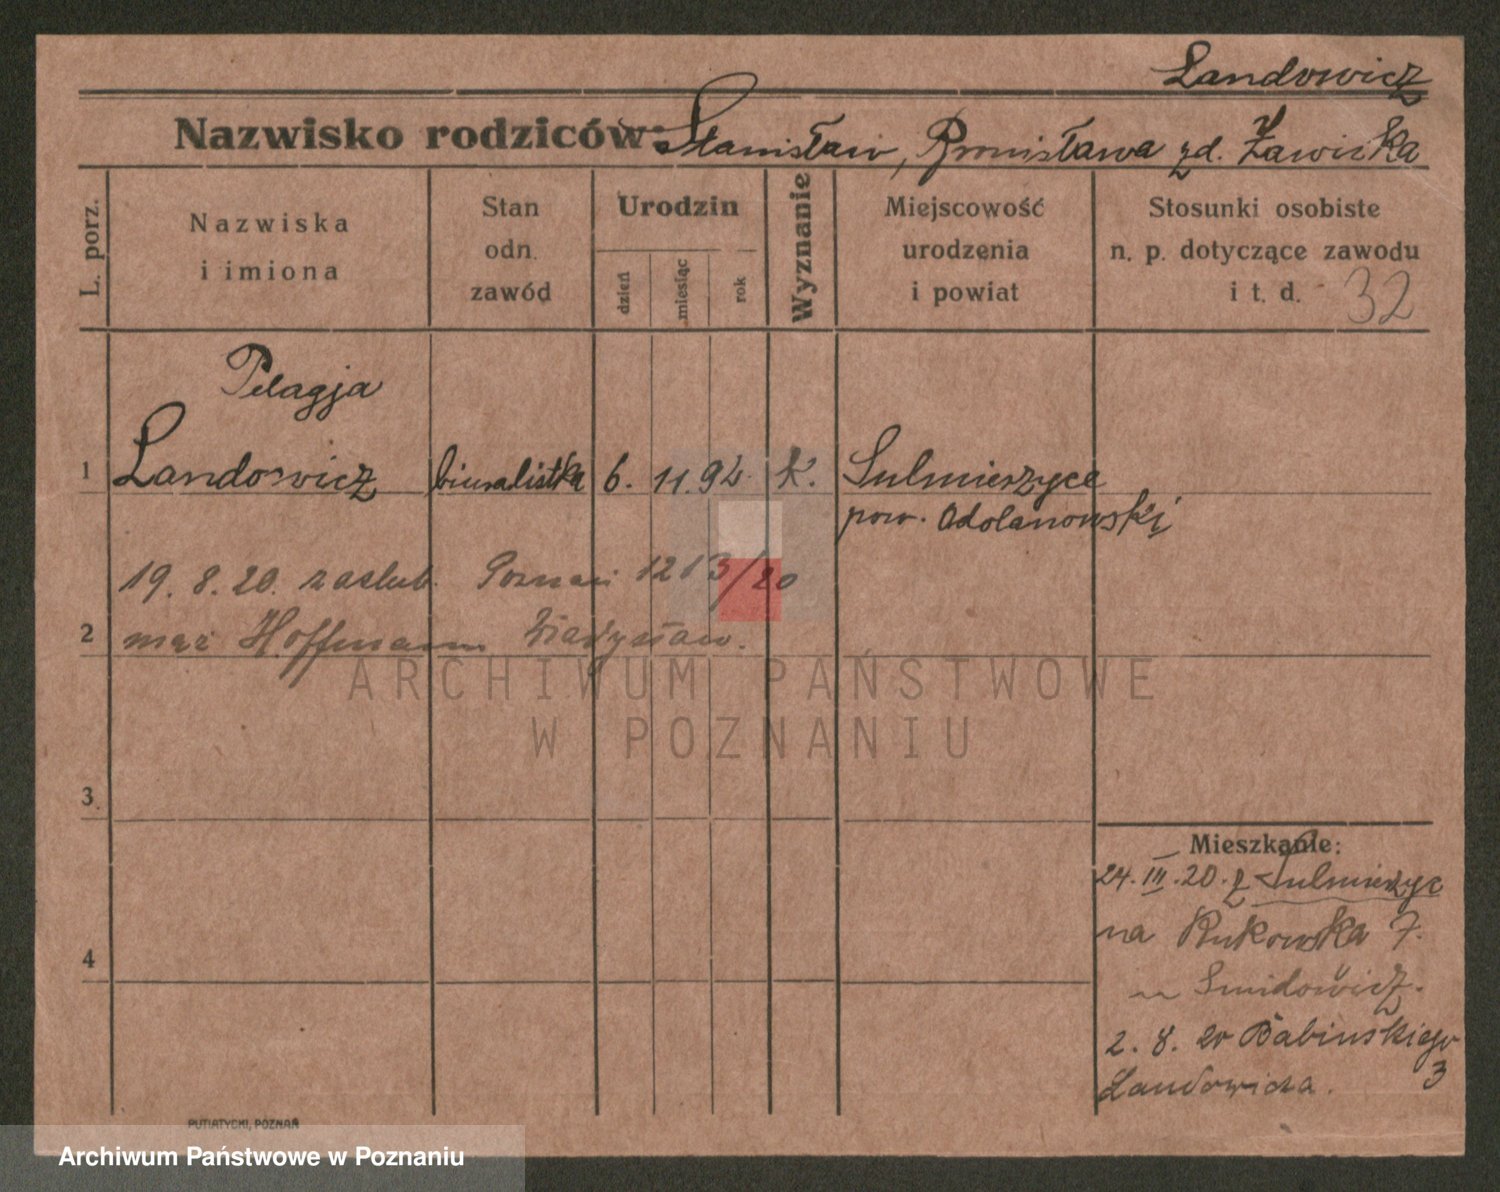 Landowicz
Nazwisko rodziców: Stanisław, Bronisława zd. Zawiska
L. porz.
Nazwiska i imiona
Stan odn. zawód
Urodzin
dzień
miesiąc
rok
Wyznanie
Miejscowość urodzenia i powiat
Stosunki osobiste n. p. dotyczące zawodu i t. d.
32
Pelagja
1 Landowicz biuralistka 6. 11. 92. k. Sulmierzyce
pow. Adolanowski
19. 8. 20. zaslub. Poznań 1213/20
2 mąż Hoffmann Władysław.
ARCHIWUM PAŃSTWOWE
W POZNANIU
3.
Mieszkanie:
24. III. 20. z Sulmierzyc
na Rukowska 7.
4
Smidowicz.
2. 8. 20 Babinskiego
3
Landowicza.
PUTIATYCKI, POZNAŃ
Archiwum Państwowe w Poznaniu